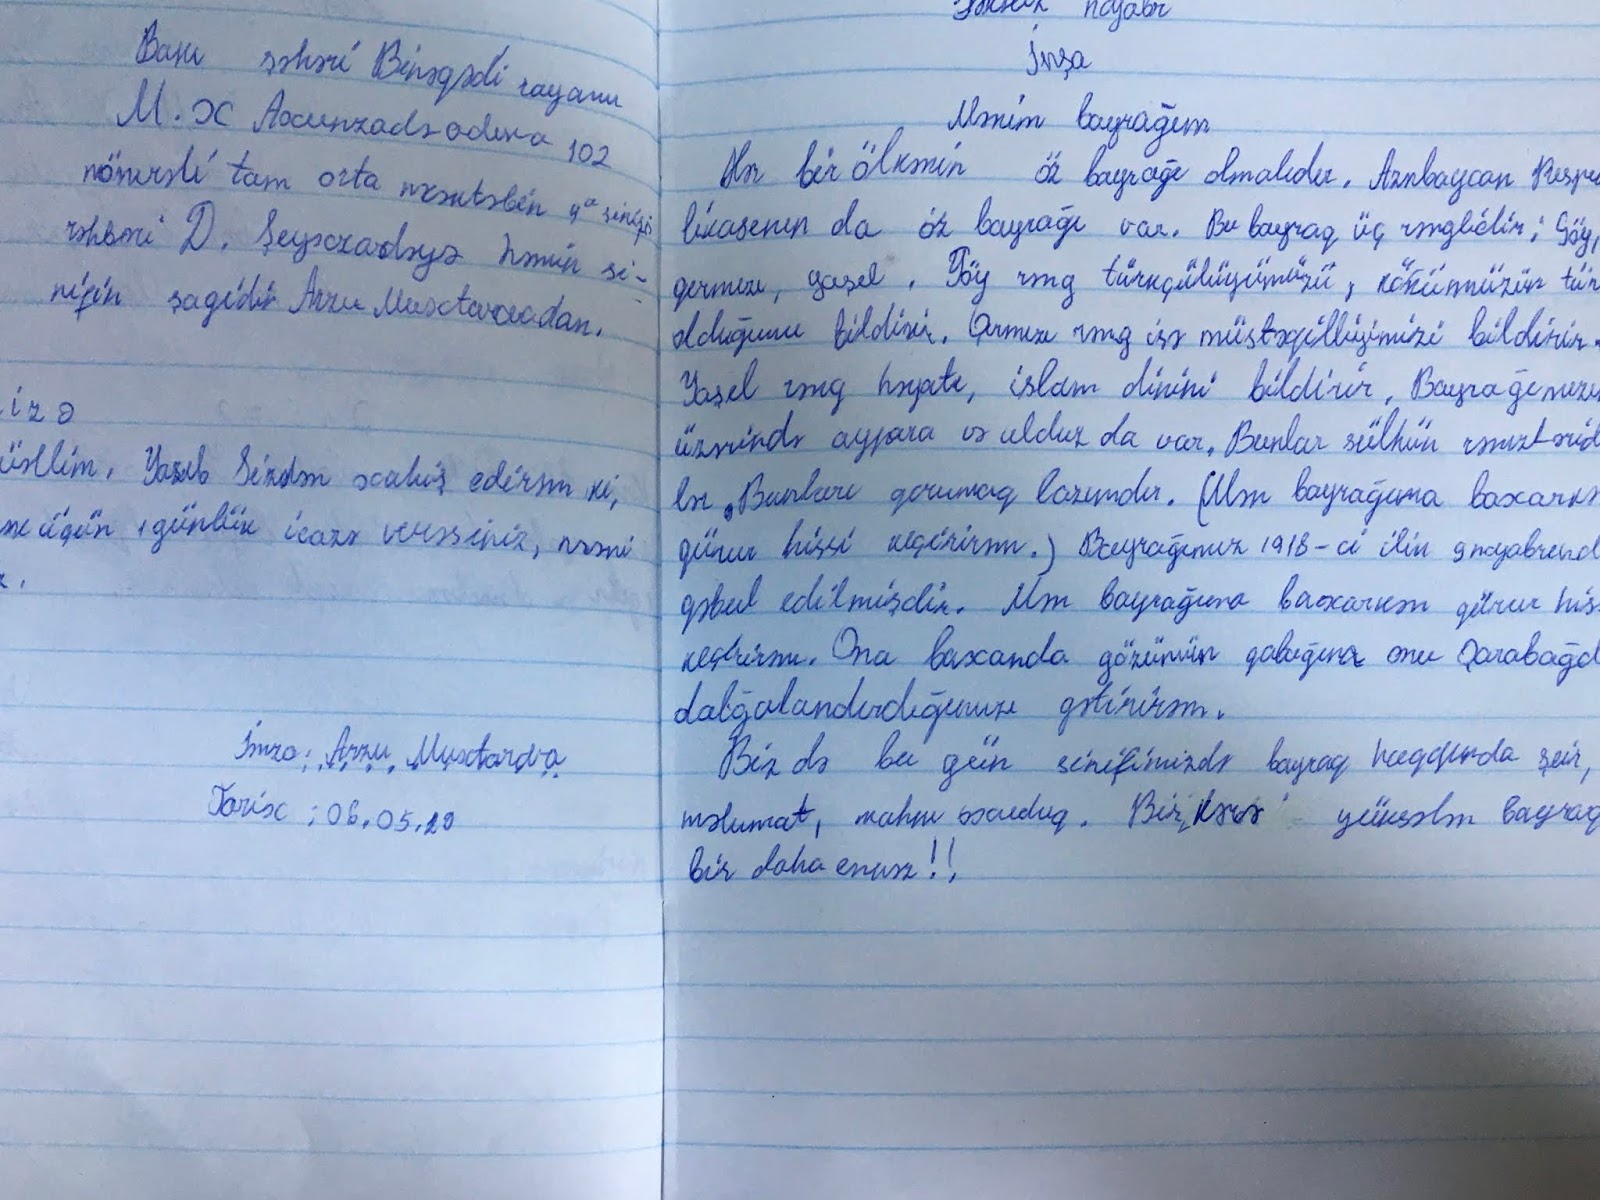 Bakı şəhəri Binəqədi rayonu
M.x Axunzadə adına 102
nömrəli tam orta məktəbin 9ª sinifi
rəhbəri D. Şeyxzadəyə həmin si-
nifin şagidir Arzu Muxtarovadan.
izə
üəllim. Yazıb Sizdən xahiş edirəm ki,
üçün 1 günlük icazə verəsiniz, məni
İmza: Arzu Muxtarova
Tarix: 06.05.20
noyabr
İnşa
Mənim bayrağım
Hər bir ölkənin öz bayrağı olmalıdır. Azərbaycan Respu
likasının da öz bayrağı var. Bu bayraq üç rənglidir: Göy,
qırmızı, yaşıl. Göy rəng türkçülüyümüzü, kökümüzün tür
olduğunu bildirir. Qırmızı rəng isə müstəqilliyimizi bildirir.
Yaşıl rəng həyatı, islam dinini bildirir. Bayrağımızın
üzərində aypara və ulduz da var. Bunlar sülhün rəmzləridi
lər. Bunları qorumaq lazımdır. (Mən bayrağıma baxarkə
gürur hissi keçirirəm.) Bayrağımız 1918-ci ilin 9 noyabrınd
qəbul edilmişdir. Mən bayrağıma baxarkən gürur his
keçirirəm. Ona baxanda gözümün qabağına onu Qarabağd
dalğalandırdığımızı gətirirəm.
Biz də bu gün sinifimizdə bayraq haqqında şeir,
məlumat, mahnı oxuduq. Bir kərə yüksələn bayraq
bir daha enməz!!